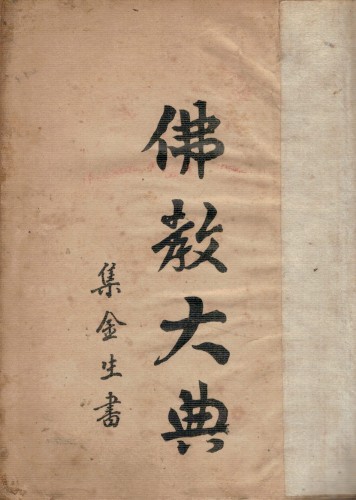 佛教大典
集金生書